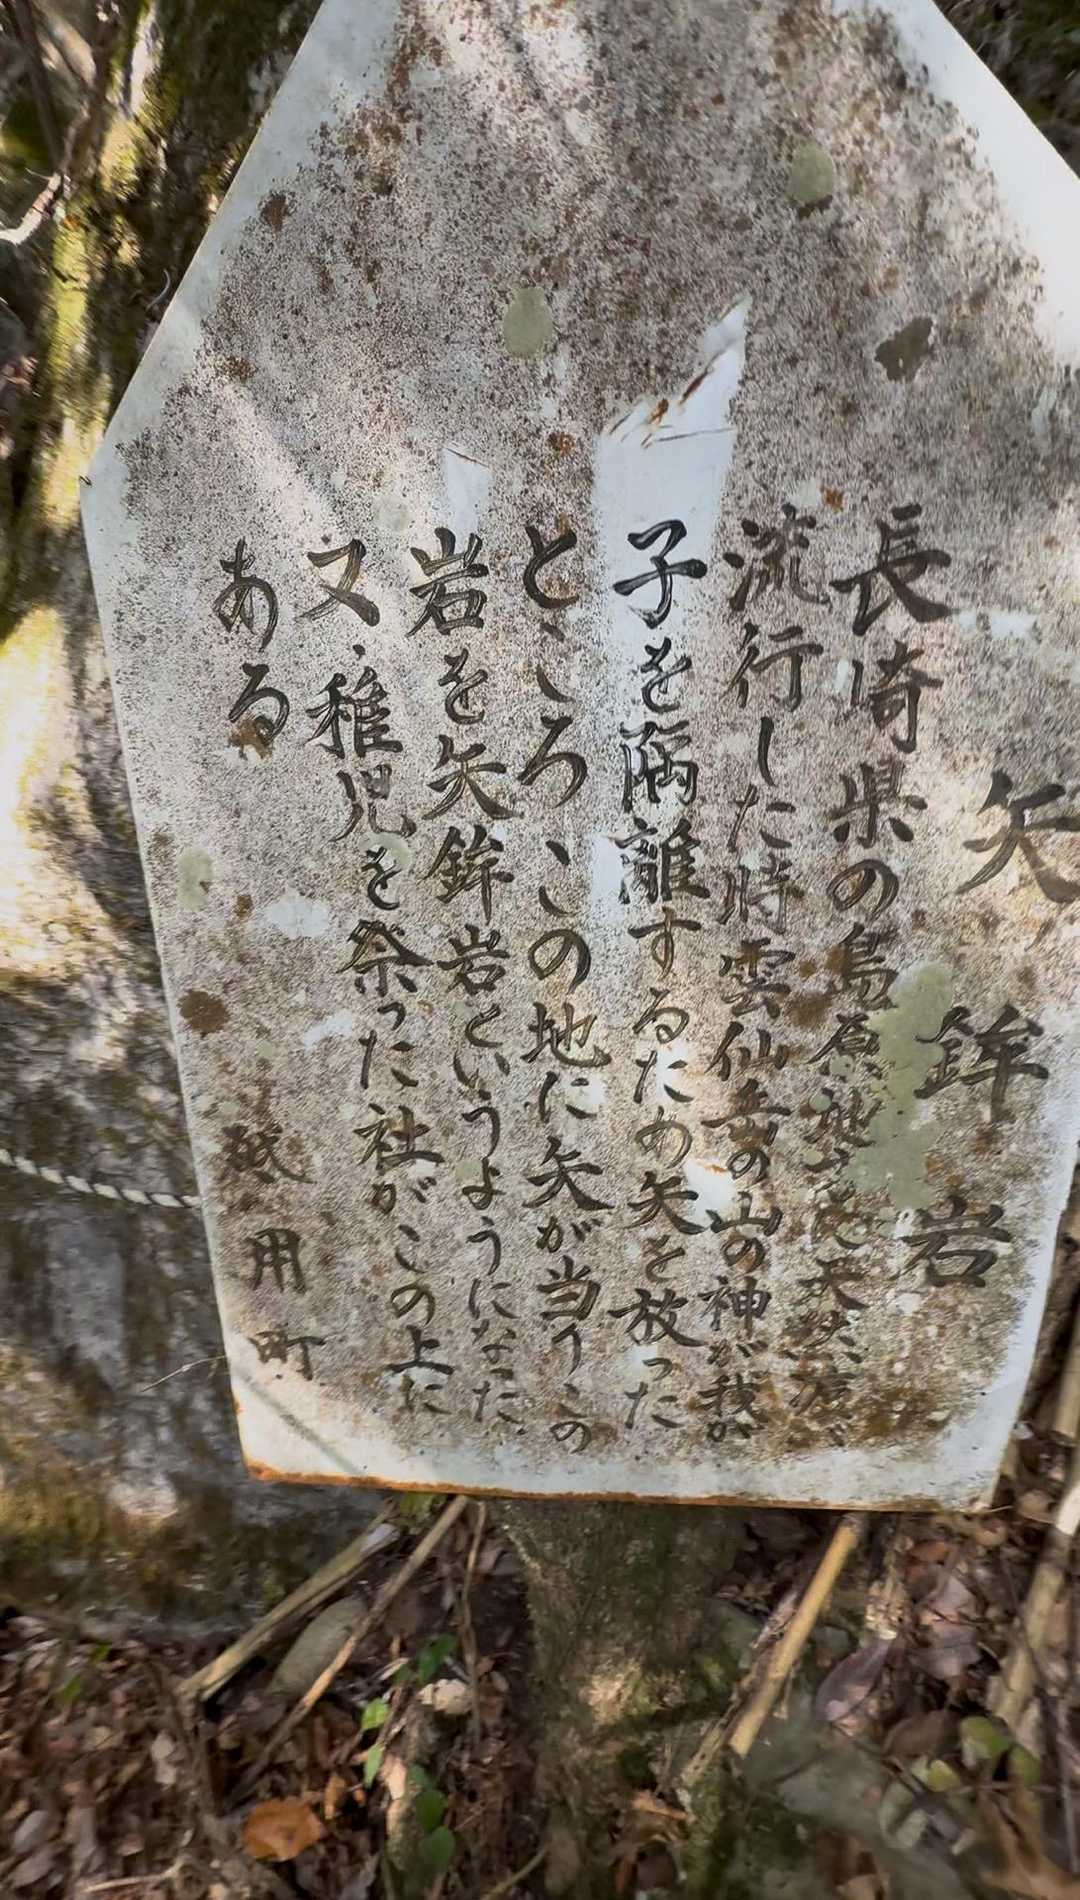 矢鉾岩
長崎県の島原地方に天然痘が
流行した時雲仙岳の山の神が我が
子を隔離するため矢を放った
ところこの地に矢が当りこの
岩を矢鉾岩というようになった
又、稚児を祭った社がこの上に
ある
砥用町